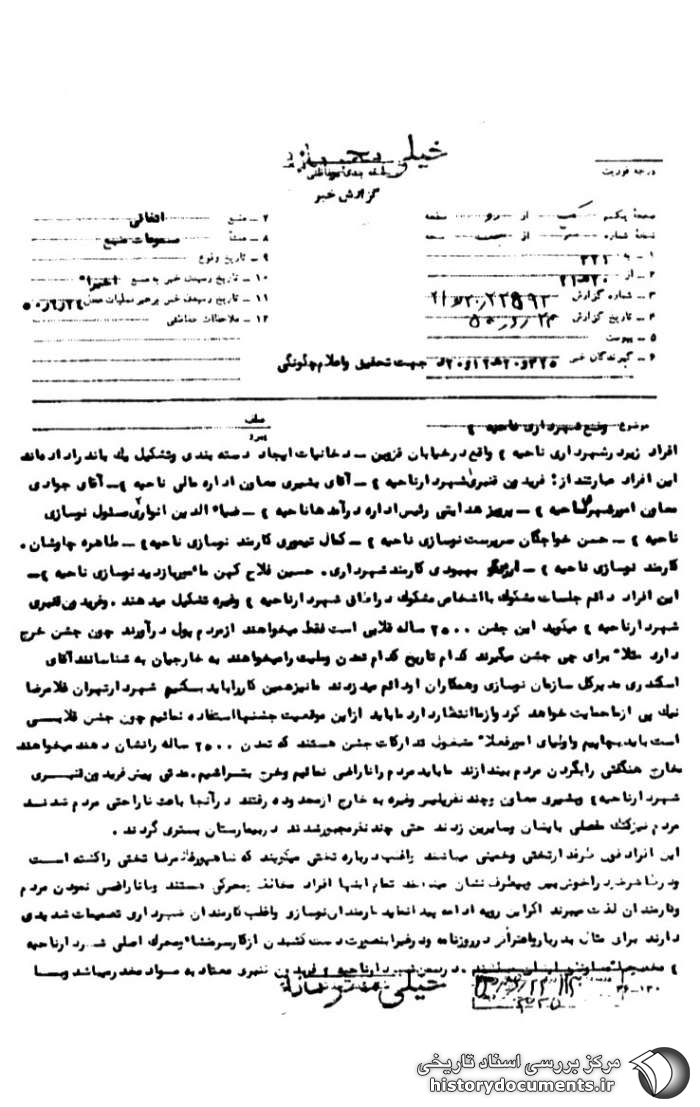 خیلی محرمانه
طبقه بندی حفاظتی
گزارش خبر
درجه فوریت
صفحهٔ یکم از دو صفحه
نسخهٔ شماره از نسخه
۱ – به ۳۲۱
۲ – از ۲۰ه۲۱
۳ – شماره گزارش
۴ – تاریخ گزارش
۵ – پیوست
۶ – گیرندگان خبر جهت تحقیق و اعلام چگونگی
۷ – منبع اتفاقی
۸ – منشأ مسموعات منبع
۹ – تاریخ وقوع
۱۰ – تاریخ رسیدن خبر به منبع اخیراً
۱۱ – تاریخ رسیدن خبر به رهبر عملیات محل
۱۲ – ملاحظات حفاظتی
موضوع وضع شهرداری ناحیه ۶
عطف
پیرو
افراد زیر در شهرداری ناحیه ۶ واقع در خیابان قزوین – دخانیات ایجاد دسته بندی و تشکیل یک باند را داده‌اند
این افراد عبارتند از: فریدون قنبری شهردار ناحیه ۶ – آقای بشیری معاون اداره مالی ناحیه ۶ – آقای جوادی
معاون امور شهر ناحیه ۶ – پرویز هدایتی رئیس اداره درآمدها ناحیه ۶ – ضیاء الدین انواری مسئول نوسازی
ناحیه ۶ – حسن خواجگان سرپرست نوسازی ناحیه ۶ – کمال تیموری کارمند نوسازی ناحیه ۶ – طاهره چاوشان.
کارمند نوسازی ناحیه ۶ – بهبودی کارمند شهرداری. حسین فلاح کهن مأمور بازدید نوسازی ناحیه ۶ –
این افراد دائم جلسات مشکوک با اشخاص مشکوک در اطاق شهردار ناحیه ۶ وغیره تشکیل میدهند. و فریدون قنبری
شهردار ناحیه ۶ میگوید این جشن ۲۵۰۰ ساله قلابی است فقط میخواهند از مردم پول درآورند چون جشن خرج
دارد مثلاً برای چی جشن میگیرند کدام تاریخ کدام تمدن و ملیت را میخواهند به خارجیان به شناسانند آقای
اسکندری مدیرکل سازمان نوسازی و همکاران او دائم میدزدند ما نیز همین کار را باید بکنیم شهردار تهران غلامرضا
نیک پی از ما حمایت خواهد کرد و از ما انتظار دارد ما باید از این موقعیت جشنها استفاده نمائیم چون جشن قلابی
است باید بچاپیم و اولیای امور فعلاً مشغول تدارکات جشن هستند که تمدن ۲۵۰۰ ساله را نشان دهند میخواهند
مخارج هنگفتی را بگردن مردم بیندازند ما باید مردم را ناراضی نمائیم و خرج بتراشیم. مدتی پیش فریدون قنبری
شهردار ناحیه ۶ و بشیری معاون و چند نفر پلیس وغیره به خارج از محدوده رفتند در آنجا باعث ناراحتی مردم شدند
مردم نیز کتک مفصلی بایشان و سایرین زدند حتی چند نفر مجبور شدند در بیمارستان بستری گردند.
این افراد فوق طرفدار تختی و خمینی میباشند و اغلب درباره تختی میگویند که شاهپور غلامرضا تختی را کشته است
و در ظاهر خود را خوش بین و بیطرف نشان میدهند تمام اینها افراد مخالف و محرکی هستند و با ناراضی نمودن مردم
و کارمندان لذت میبرند اگر این رویه ادامه پیدا نماید کارمندان نوسازی و اغلب کارمندان شهرداری تصمیمات شدیدی
دارند برای مثال بدربار و اعتراض در روزنامه و در غیر اینصورت دست کشیدن از کار سرمنشاء و محرک اصلی شهردار ناحیه
۶ فریدون قنبری معتاد به مواد مخدر میباشد و بسا
خیلی محرمانه
۳۶–۱۳۰
مرکز بررسی اسناد تاریخی
historydocuments.ir